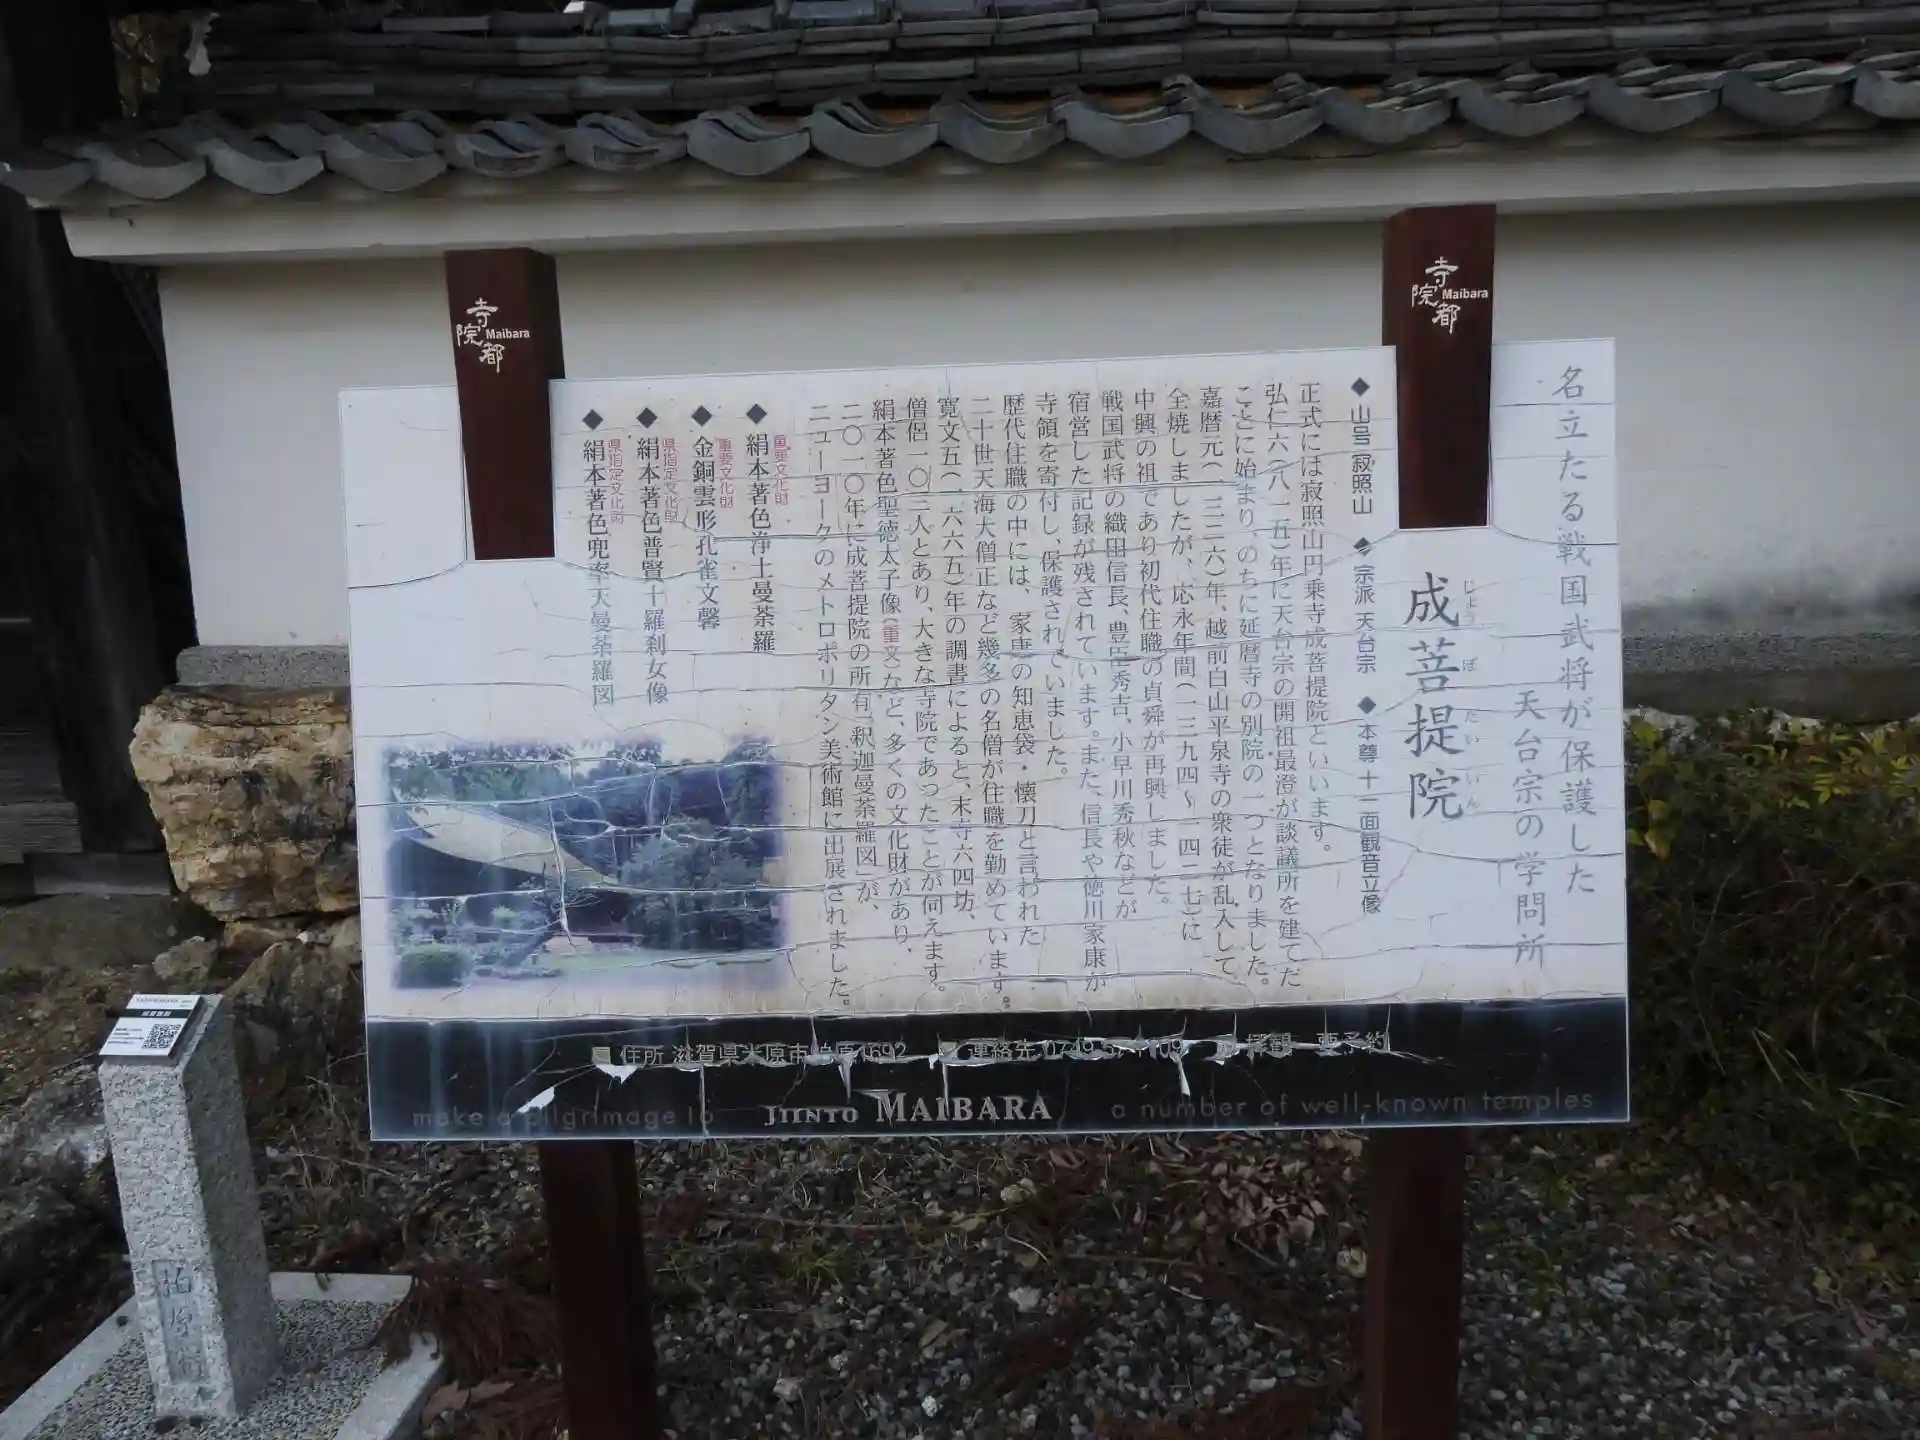 名立たる戦国武将が保護した
天台宗の学問所
成菩提院
じょうぼだいいん
◆山号 寂照山 ◆宗派 天台宗 ◆本尊 十一面観音立像
正式には寂照山円乗寺成菩提院といいます。
弘仁六(八一五)年に天台宗の開祖最澄が談議所を建てだ
ことに始まり、のちに延暦寺の別院の一つとなりました。
嘉暦元(一三二六)年、越前白山平泉寺の衆徒が乱入して
全焼しましたが、応永年間(一三九四〜一四二七)に
中興の祖であり初代住職の貞舜が再興しました。
戦国武将の織田信長、豊臣秀吉、小早川秀秋などが
宿営した記録が残されています。また、信長や徳川家康が
寺領を寄付し、保護されていました。
歴代住職の中には、家康の知恵袋・懐刀と言われた
二十世天海大僧正など幾多の名僧が住職を勤めています。
寛文五(一六六五)年の調書によると、末寺六四坊、
僧侶一〇三人とあり、大きな寺院であったことが伺えます。
絹本著色聖徳太子像(重文)など、多くの文化財があり、
二〇一〇年に成菩提院の所有「釈迦曼荼羅図」が、
ニューヨークのメトロポリタン美術館に出展されました。
重要文化財
◆絹本著色浄土曼荼羅
重要文化財
◆金銅雲形孔雀文磬
県指定文化財
◆絹本著色普賢十羅刹女像
県指定文化財
◆絹本著色兜率天曼荼羅図
住所 滋賀県米原市柏原1692 連絡先 拝観 要予約
make a pilgrimage to JIINTO MAIBARA a number of well-known temples
寺院都 Maibara
寺院都 Maibara
柏原宿